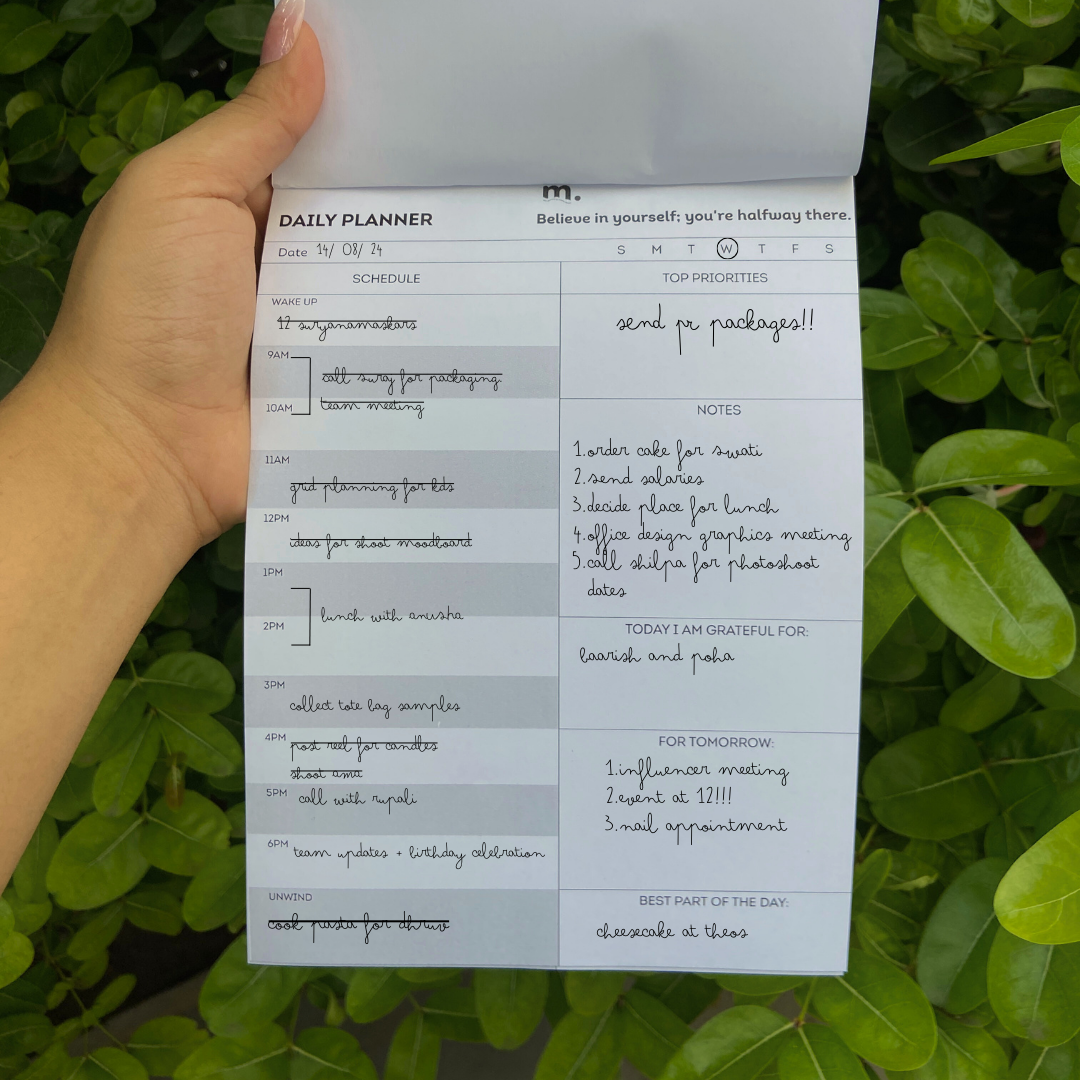 m.
DAILY PLANNER
Believe in yourself; you're halfway there.
Date 14/ 08/ 24
S M T W T F S
SCHEDULE
WAKE UP
12 suryanamaskars
9AM
call suraj for packaging
10AM
team meeting
11AM
grid planning for kds
12PM
ideas for shoot moodboard
1PM
lunch with anusha
2PM
3PM
collect tote bag samples
4PM
post reel for candles
shoot ama
5PM
call with rupali
6PM
team updates + birthday celebration
UNWIND
cook pasta for dhruv
TOP PRIORITIES
send pr packages!!
NOTES
1.order cake for swati
2.send salaries
3.decide place for lunch
4.office design graphics meeting
5.call shilpa for photoshoot
dates
TODAY I AM GRATEFUL FOR:
baarish and poha
FOR TOMORROW:
1.influencer meeting
2.event at 12!!!
3.nail appointment
BEST PART OF THE DAY:
cheesecake at theos